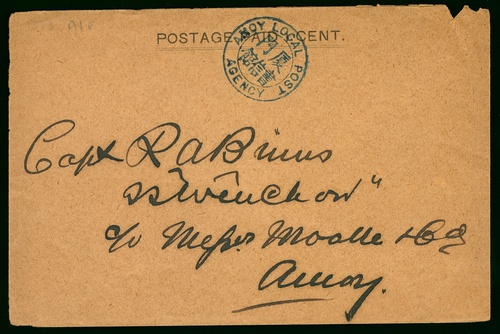 POSTAGE PAID 1 CENT.
AMOY LOCAL POST
廈門
書信館
AGENCY
Capt R A Binns
SS "Wenchow"
c/o Messrs Moalle & Co
Amoy.